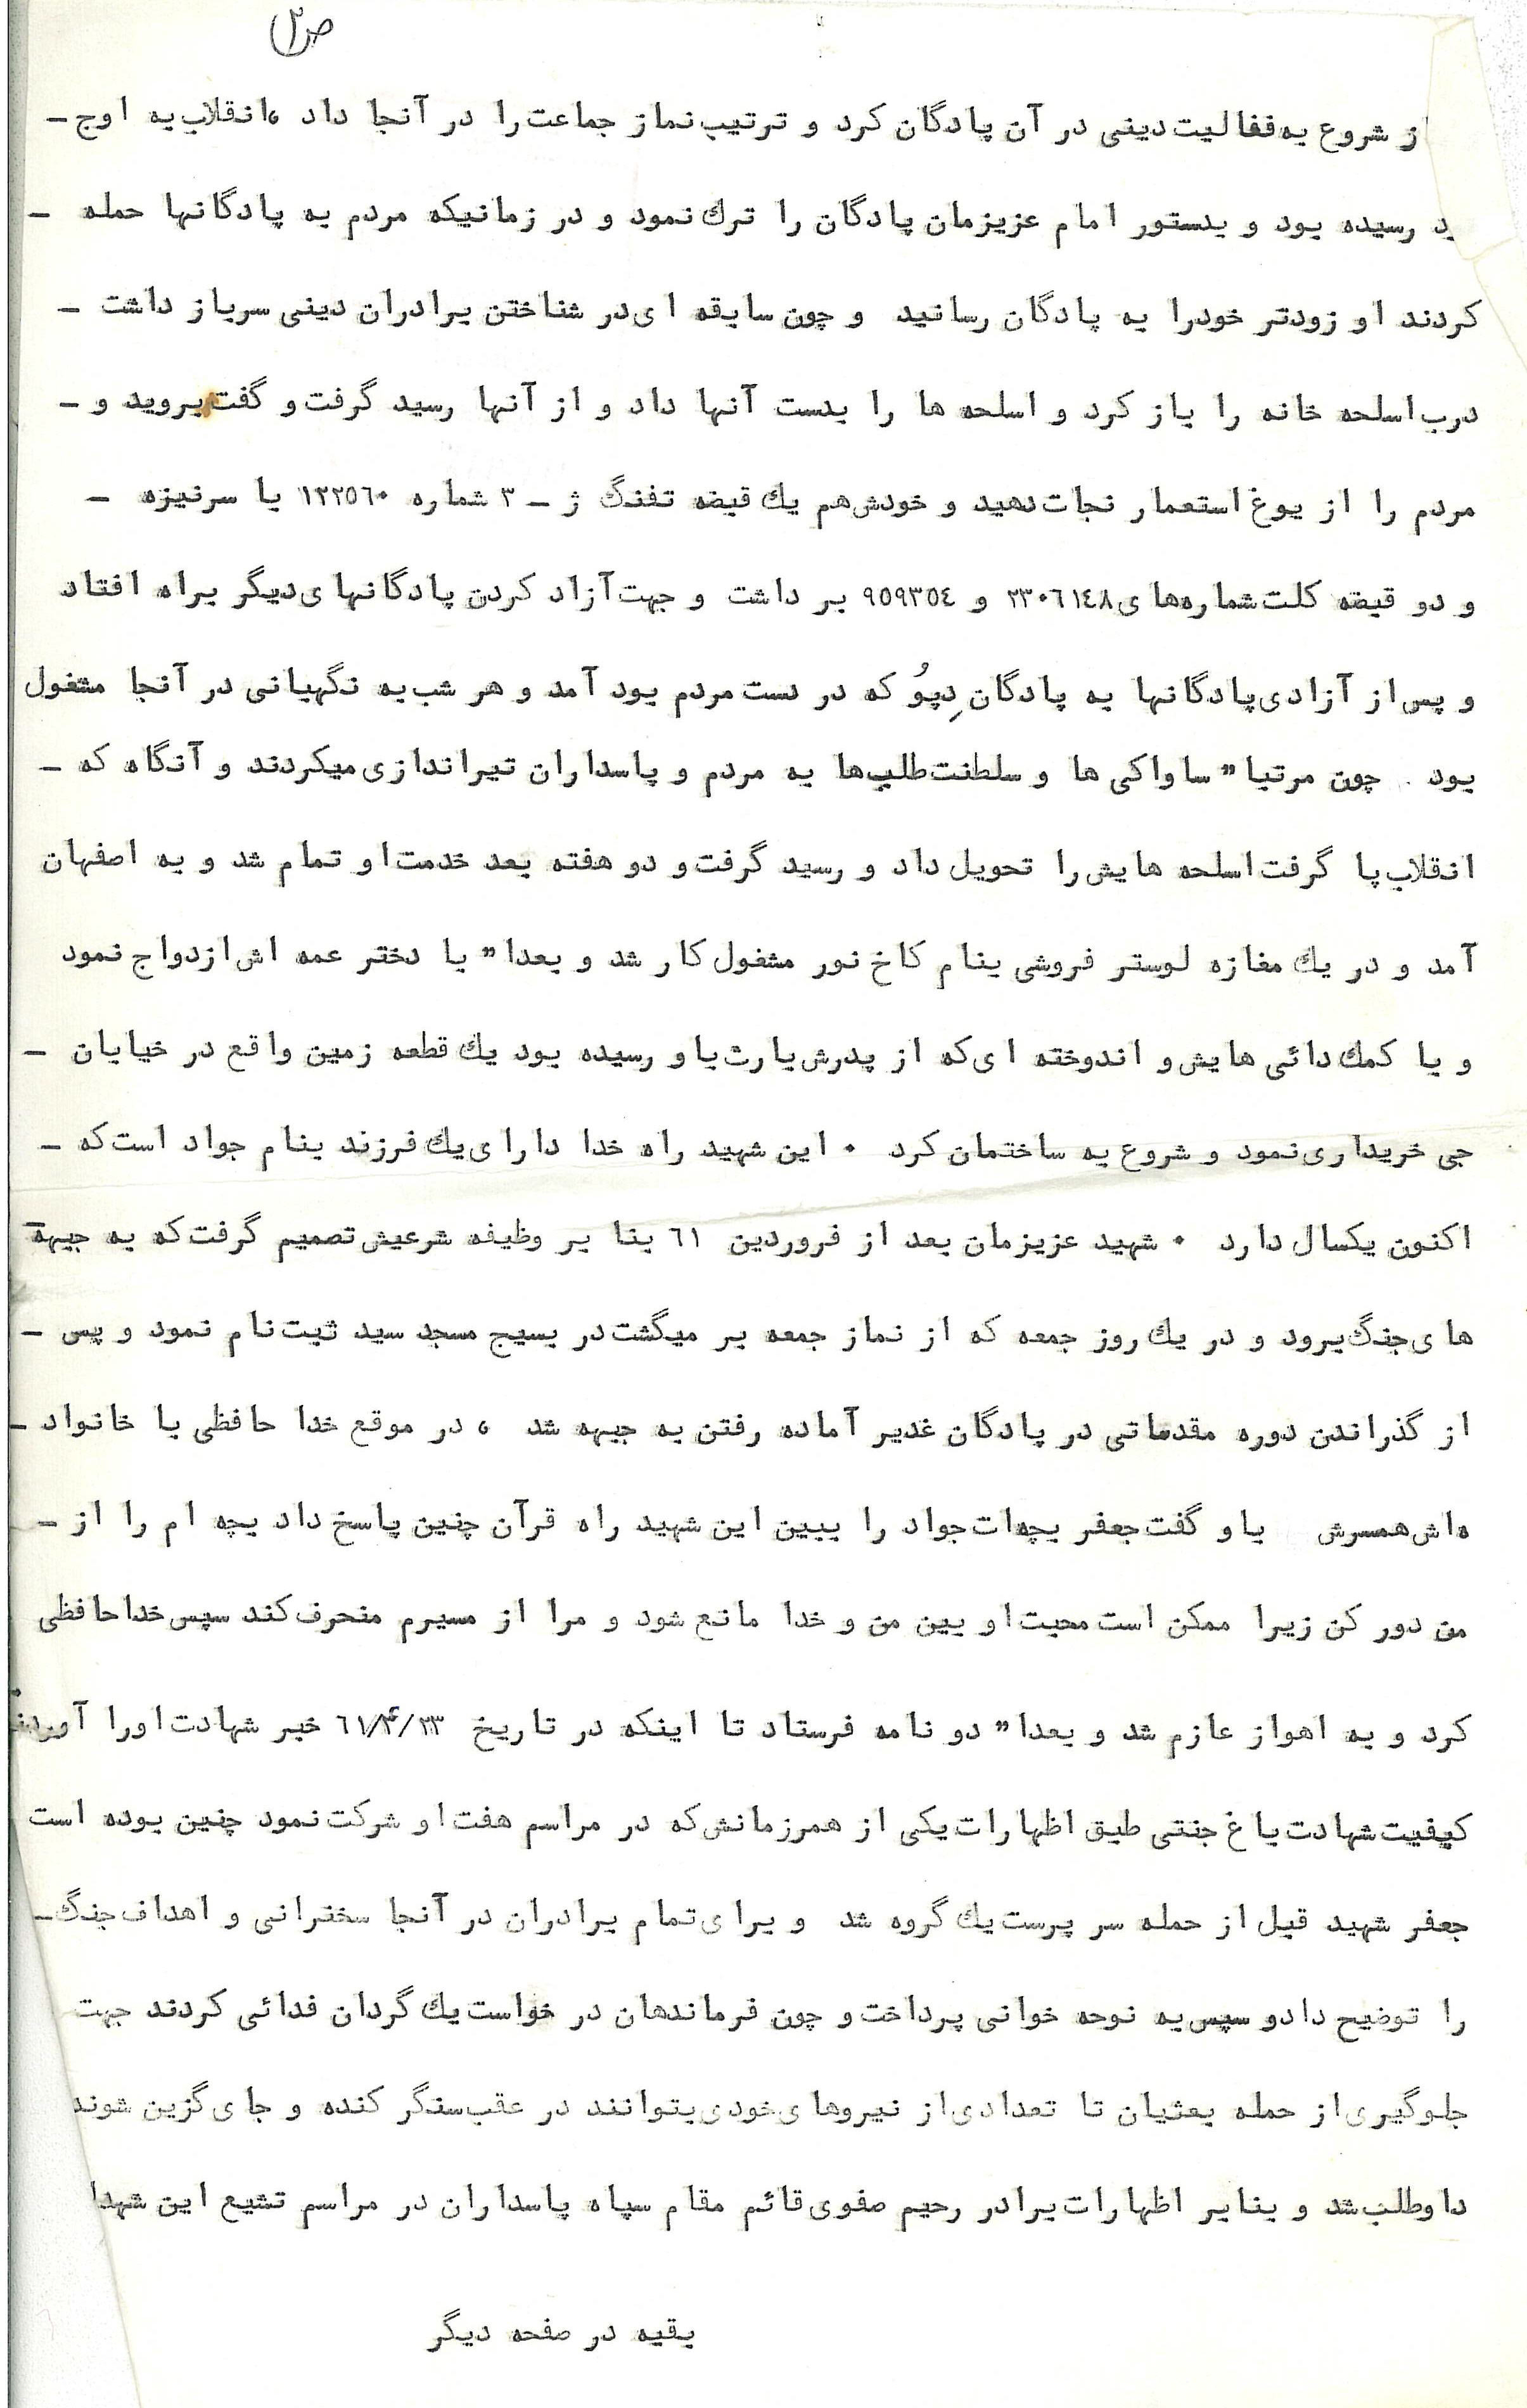 ص۲
ز شروع به فعالیت دینی در آن پادگان کرد و ترتیب نماز جماعت را در آنجا داد ، انقلاب به اوج -
د رسیده بود و بدستور امام عزیزمان پادگان را ترك نمود و در زمانیکه مردم به پادگانها حمله -
کردند او زودتر خودرا به پادگان رسانید و چون سابقه ای در شناختن برادران دینی سرباز داشت -
درب اسلحه خانه را باز کرد و اسلحه ها را بدست آنها داد و از آنها رسید گرفت و گفت بروید و -
مردم را از یوغ استعمار نجات دهید و خودش هم یك قبضه تفنگ ژ - ۳ شماره ۱۲۲۵۶۰ با سرنیزه -
و دو قبضه کلت شماره‌های ۲۳۰۶۱۴۸ و ۹۵۹۳۵۴ بر داشت و جهت آزاد کردن پادگانهای دیگر براه افتاد
و پس از آزادی پادگانها به پادگان دِپوُ که در دست مردم بود آمد و هر شب به نگهبانی در آنجا مشغول
بود . چون مرتبا" ساواکی ها و سلطنت طلب‌ها به مردم و پاسداران تیراندازی میکردند و آنگاه که -
انقلاب پا گرفت اسلحه هایش را تحویل داد و رسید گرفت و دو هفته بعد خدمت او تمام شد و به اصفهان
آمد و در یك مغازه لوستر فروشی بنام کاخ نور مشغول کار شد و بعدا" با دختر عمه اش ازدواج نمود
و با کمك دائی هایش و اندوخته ای که از پدرش بارث باو رسیده بود یك قطعه زمین واقع در خیابان -
جی خریداری نمود و شروع به ساختمان کرد ۰ این شهید راه خدا دارای یك فرزند بنام جواد است که -
اکنون یکسال دارد ۰ شهید عزیزمان بعد از فروردین ۶۱ بنا بر وظیفه شرعیش تصمیم گرفت که به جبهه
های جنگ برود و در یك روز جمعه که از نماز جمعه بر میگشت در بسیج مسجد سید ثبت نام نمود و پس -
از گذراندن دوره مقدماتی در پادگان غدیر آماده رفتن به جبهه شد ، در موقع خدا حافظی با خانواد -
ه اش همسرش باو گفت جعفر بچه‌ات جواد را ببین این شهید راه قرآن چنین پاسخ داد بچه ام را از -
من دور کن زیرا ممکن است محبت او بین من و خدا مانع شود و مرا از مسیرم منحرف کند سپس خداحافظی
کرد و به اهواز عازم شد و بعدا" دو نامه فرستاد تا اینکه در تاریخ ۶۱/۴/۲۳ خبر شهادت اورا آوردند
کیفیت شهادت باغ جنتی طبق اظهارات یکی از همرزمانش که در مراسم هفت او شرکت نمود چنین بوده است
جعفر شهید قبل از حمله سر پرست یك گروه شد و برای تمام برادران در آنجا سخنرانی و اهداف جنگ -
را توضیح دادو سپس به نوحه خوانی پرداخت و چون فرماندهان در خواست یك گردان فدائی کردند جهت
جلوگیری از حمله بعثیان تا تعدادی از نیروهای خودی بتوانند در عقب سنگر کنده و جای گزین شوند
داوطلب شد و بنابر اظهارات برادر رحیم صفوی قائم مقام سپاه پاسداران در مراسم تشیع این شهدا
بقیه در صفحه دیگر